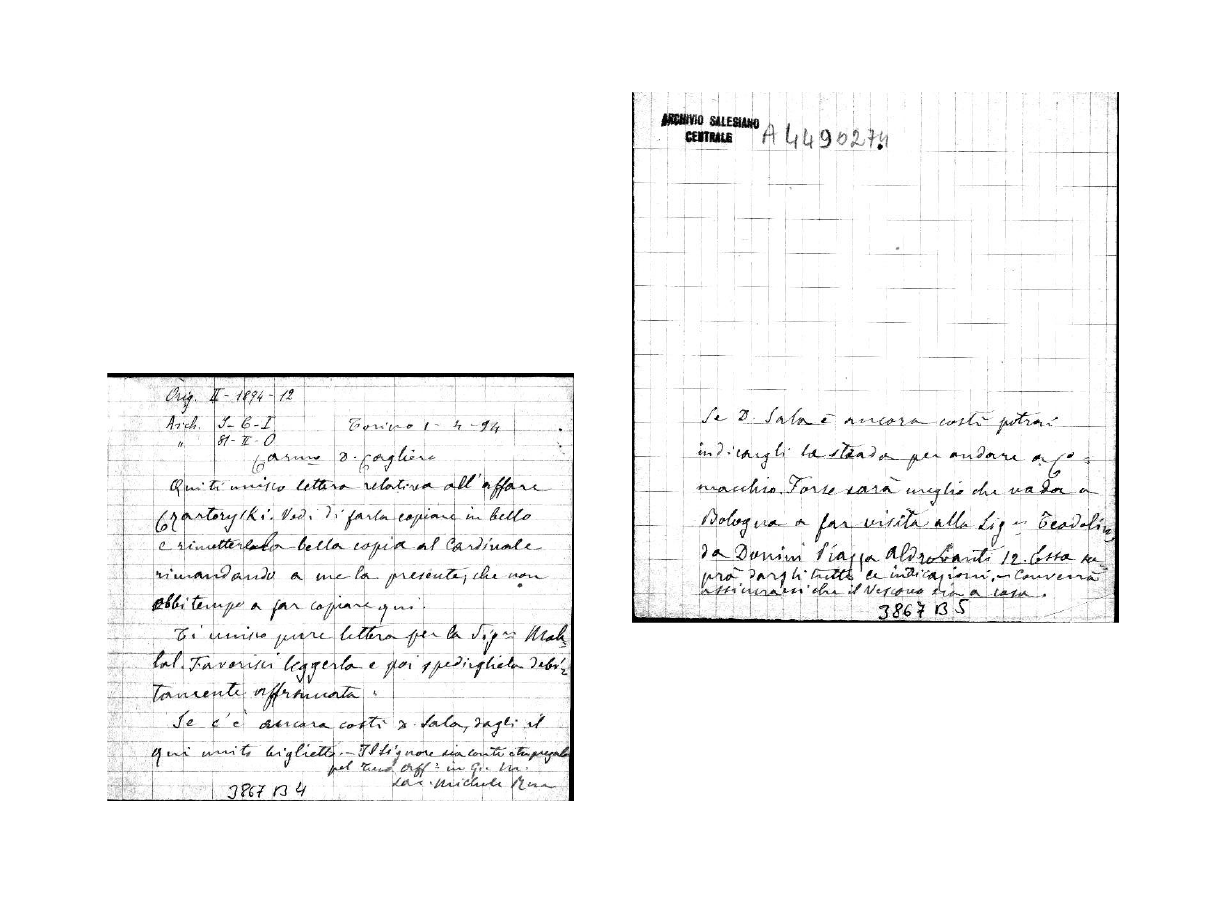 Orig. II - 1894 - 12
Arch. S-6-I
" 81-II-O
Torino 1 - 4 - 94
Carmo D. Cagliero
Qui ti unisco lettera relativa all'affare
Czartoryski. Vedi di farla copiare in bello
e rimetterla la bella copia al Cardinale
rimandando a me la presente, che non
ebbi tempo a far copiare qui.
Ti unisco pure lettera per la Siga
lal. Favorisci leggerla e poi spedirgliela debi=
tamente affrancata.
Se c'è ancora costì D. Sala, dagli il
qui unito biglietto. - Il Signore sia con te e tu prega
pel tuo aff.o in G. e M.
Sac. Michele Rua
3867 B 4
ARCHIVIO SALESIANO
CENTRALE
A 4490274
Se D. Sala è ancora costì potrai
indicargli la strada per andare a Co=
macchio. Forse sarà meglio che vada a
Bologna a far visita alla Sig.a Teodolin
da Donini Piazza Aldrovanti 12. Essa sa=
prà dargli tutte le indicazioni. - Converrà
assicurarsi che il Vescovo sia a casa.
3867 B 5